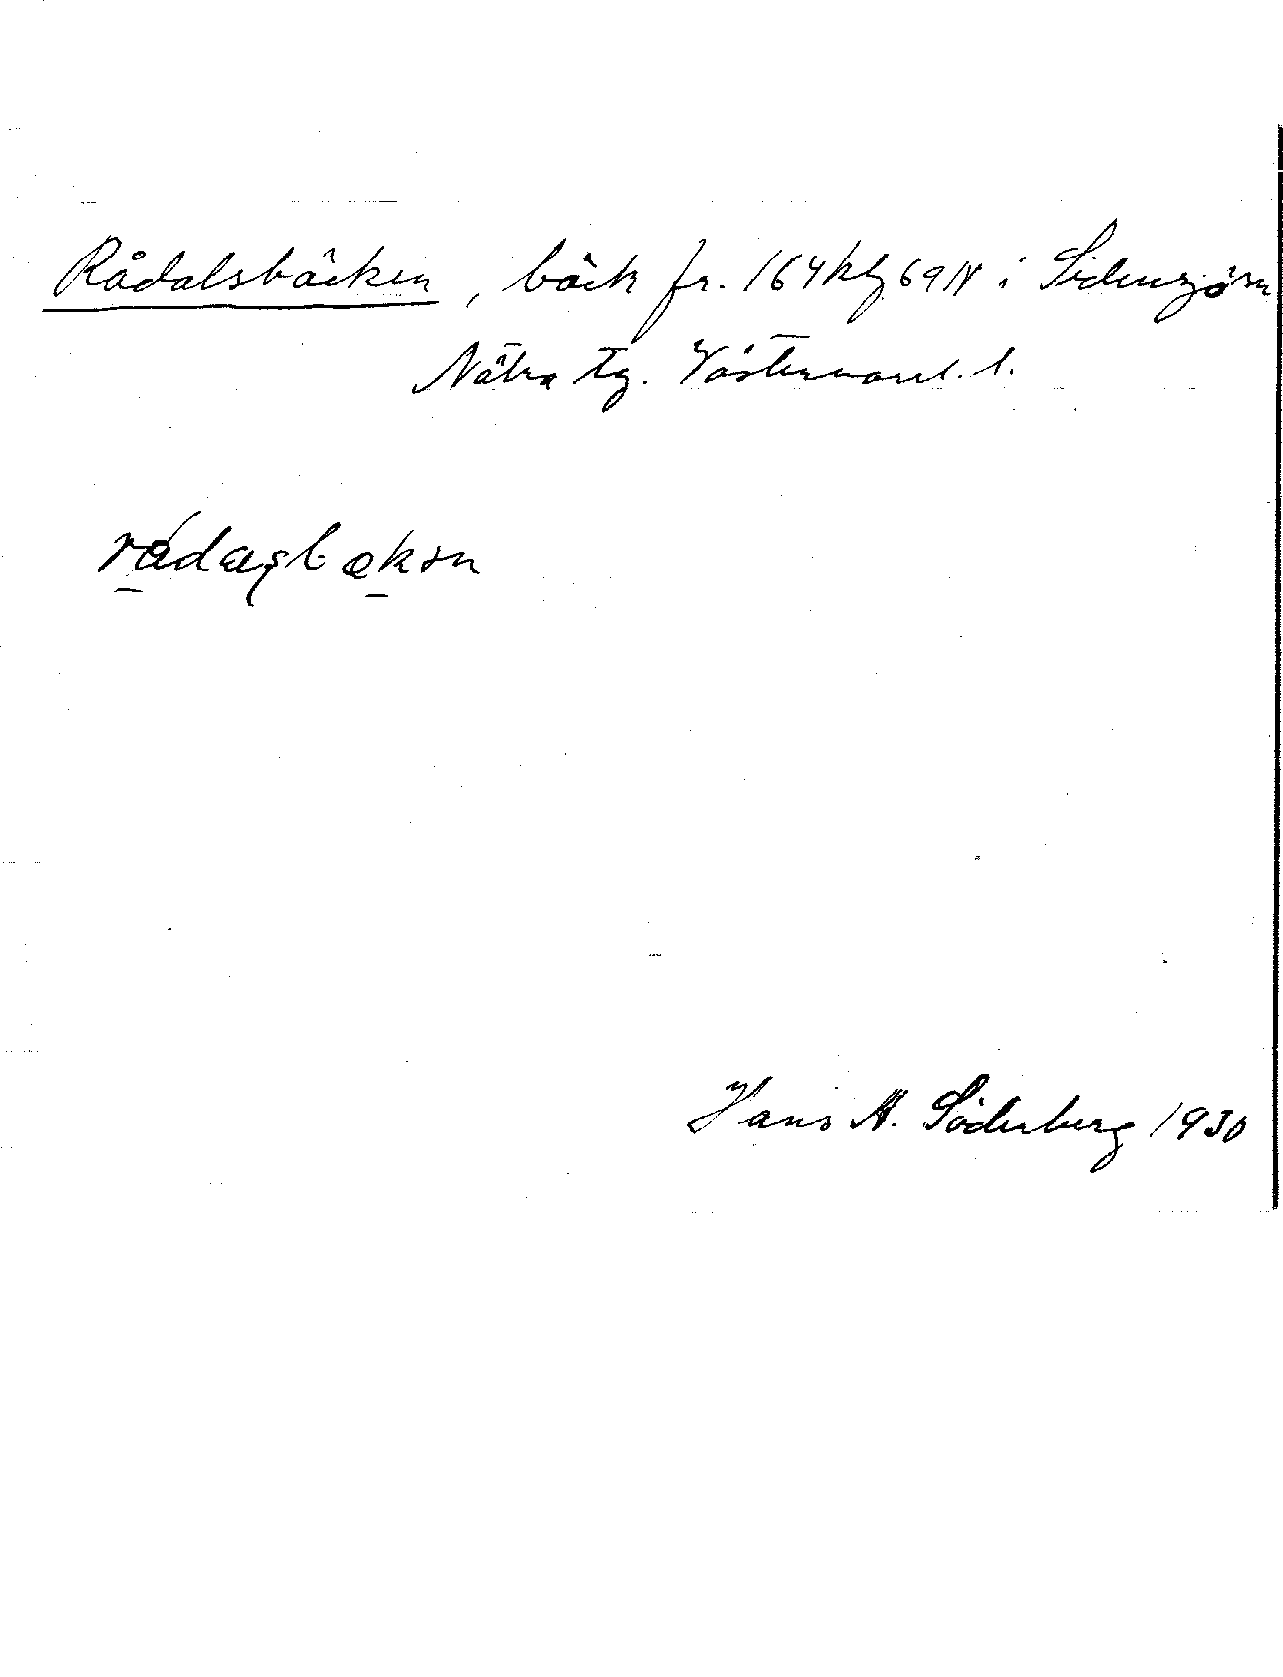 Rådalsbäcken, bäck fr. 164 kly 69 N i Sidensjö sn
Nätra tg. Västernorrl. l.
Hans A. Söderberg 1930